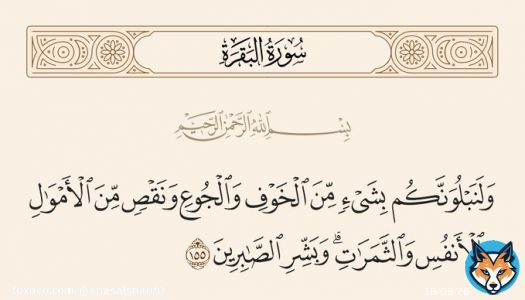 سُورَةُ البَقَرَةِ
بِسْمِ اللَّهِ الرَّحْمَٰنِ الرَّحِيمِ
وَلَنَبْلُوَنَّكُم بِشَىْءٍ مِّنَ ٱلْخَوْفِ وَٱلْجُوعِ وَنَقْصٍ مِّنَ ٱلْأَمْوَٰلِ
وَٱلْأَنفُسِ وَٱلثَّمَرَٰتِ ۗ وَبَشِّرِ ٱلصَّـٰبِرِينَ ١٥٥